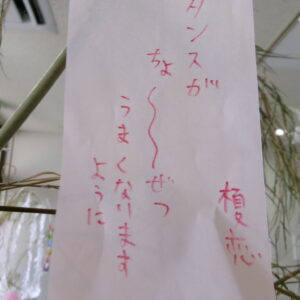 ダンスが
ちょ〜〜ぜっ
うまくなります
ように
榎恋